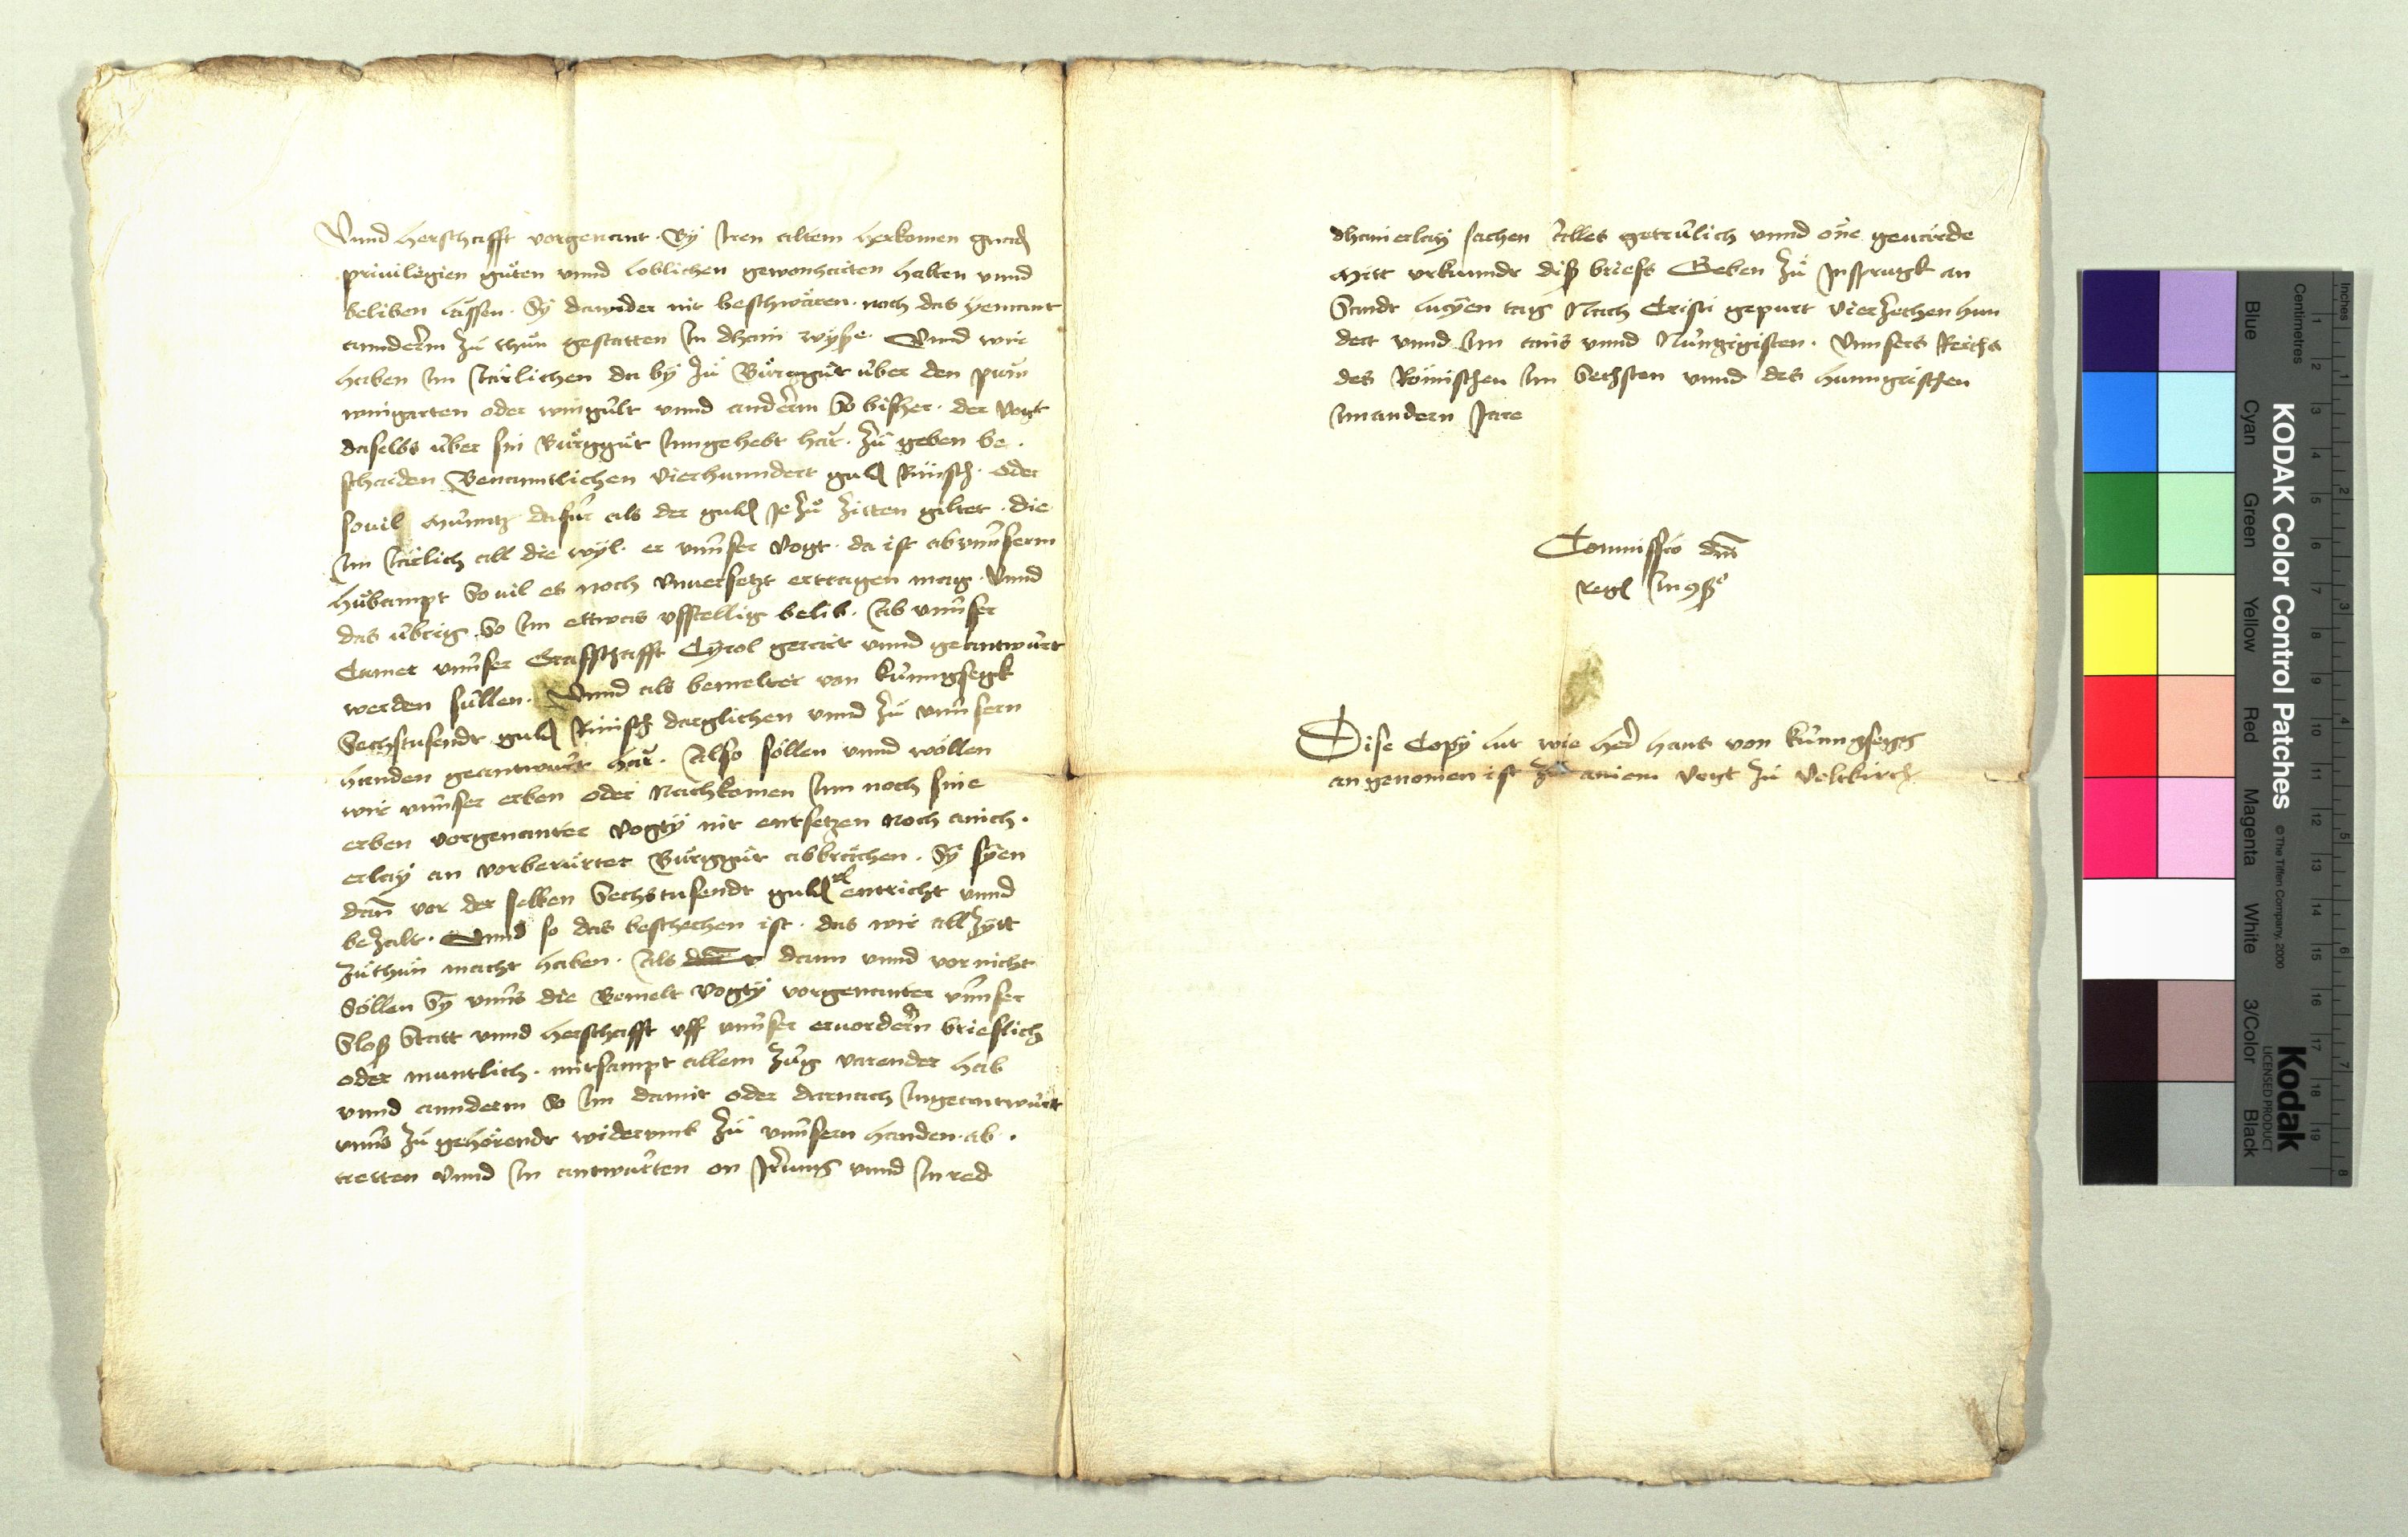 Vnnd herschafft vorgenant. By Iren altem herkomen gnad
priuilegien gůten vnnd loblichen gewonhaiten halten vnnd
beliben lǎssen. Sy darwider nit beschwären. noch das yemant
annderm zů thůn gestatten In dhain wyße. Vnnd wir
haben Im Iärlichen da by zů Burggůt über den paw
wingarten oder wingült vnnd anderm So bisher. der Vogt
daselbs über sin Burggůt Inngehebt hǎt. zů geben be.
schaiden Benanntlichen Vierhunndert guld Rinisch. oder
souil Münntz dafür als der guld Je zů zitten giltet. die
Im Iärlich all die wyl. er vnnser Vogt. da ist ab vnnserm
hůbampt So uil es noch Vnuersetzt ertragen mag. Vnnd
das übrig So Im ettwas vsstellig belib. Ab vnnser
Camer vnnser Grafschafft Tyrol geraicht vnnd geantwürt
werden süllen. Vnnd als bemelter von küngsegk
Sechstusendt guld Rinisch dargelichen vnnd zů vnnsern
handen geantwurt hǎt. Also söllen vnnd wöllen
wir vnnser erben oder Nachkomen Im noch sine
erben vorgenanter Vogty nit entsetzen Noch ainich.
erlay an vorberürter Burggůt abbrächen. Sy syen
dann vor der selben Sechstusendt guld entricht vnnd
bezalt. Vnnd so das beschechen ist. das wir allzytt
zůthůn macht haben. Als dann vnnd vor nicht
Söllen Sy vnns die Bemelt Vogty vorgenanter vnnser
Sloß Statt vnnd herschafft vff vnnser eruordern brieflich
oder muntlich. mitsampt allem züg varender hab
vnnd annderm So Im damit oder darnach Ingeantwürt
vnns zů gehörendt widerumb zů vnnsern handen. ab.
tretten Vnnd In antwürten on Irrung vnnd In red
dhainerlay sachen Alles getrülich vnnd one geuärde
Mitt vrkunndt diß briefs Geben zů Jnsprugk an
Sandt lucyen tag Nach Cristi gepurt Vierzechen hun
dert vnnd Im ains vnnd Nüntzigisten. Vnnsers Reichs
des Römischen Im Sechsten vnnd des hunngrischen
Im andern Jare
Commissio dnj
Regl In 9ßo
Dise Copy lut wie her hans von küngsegg
an genomen ist zů ainem Vogt zů Veltkirch